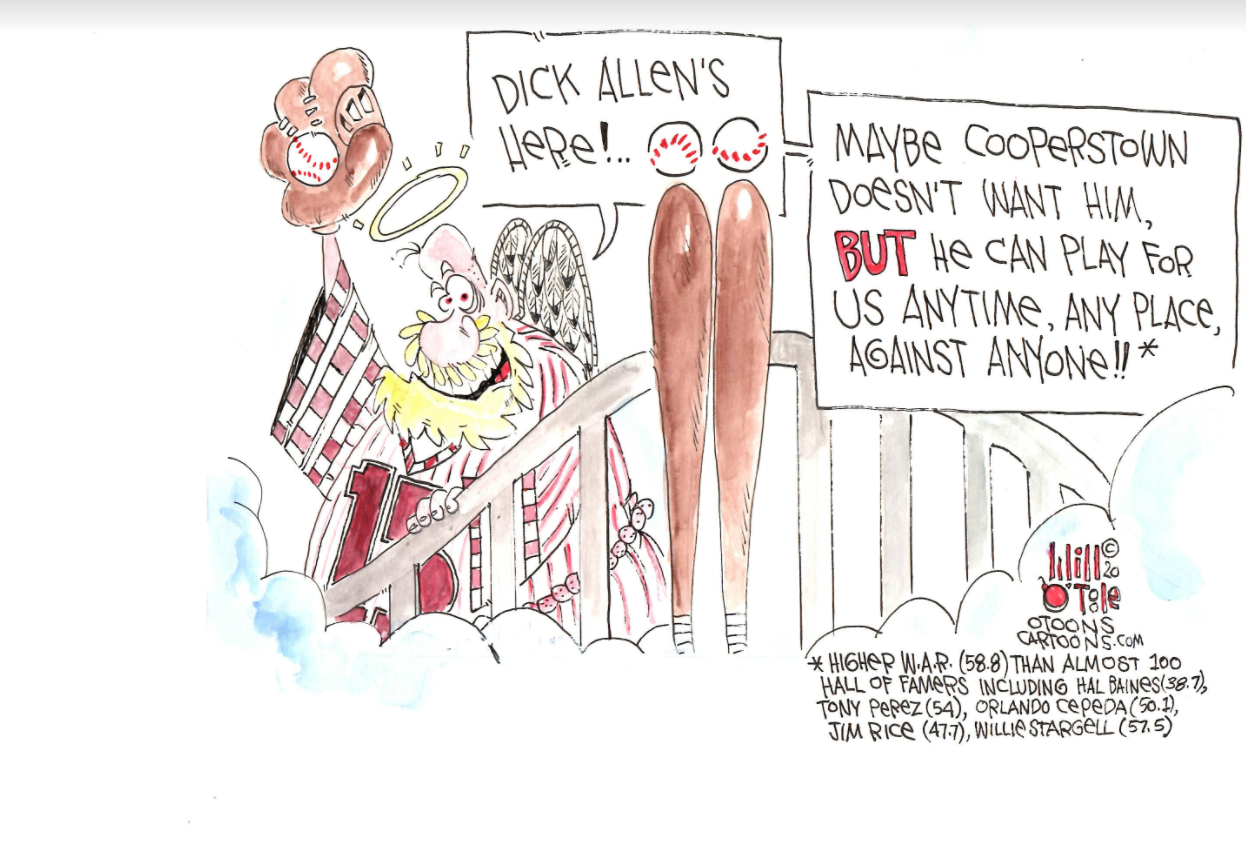 DICK ALLEN'S
HERE!..
MAYBE COOPERSTOWN
DOESN'T WANT HIM,
BUT HE CAN PLAY FOR
US ANYTIME, ANY PLACE,
AGAINST ANYONE!! *
15
Will © 20
O'Toole
OTOONS
CARTOONS.COM
* HIGHER W.A.R. (58.8) THAN ALMOST 100
HALL OF FAMERS INCLUDING HAL BAINES (38.7),
TONY PEREZ (54), ORLANDO CEPEDA (50.1),
JIM RICE (47.7), WILLIE STARGELL (57.5)